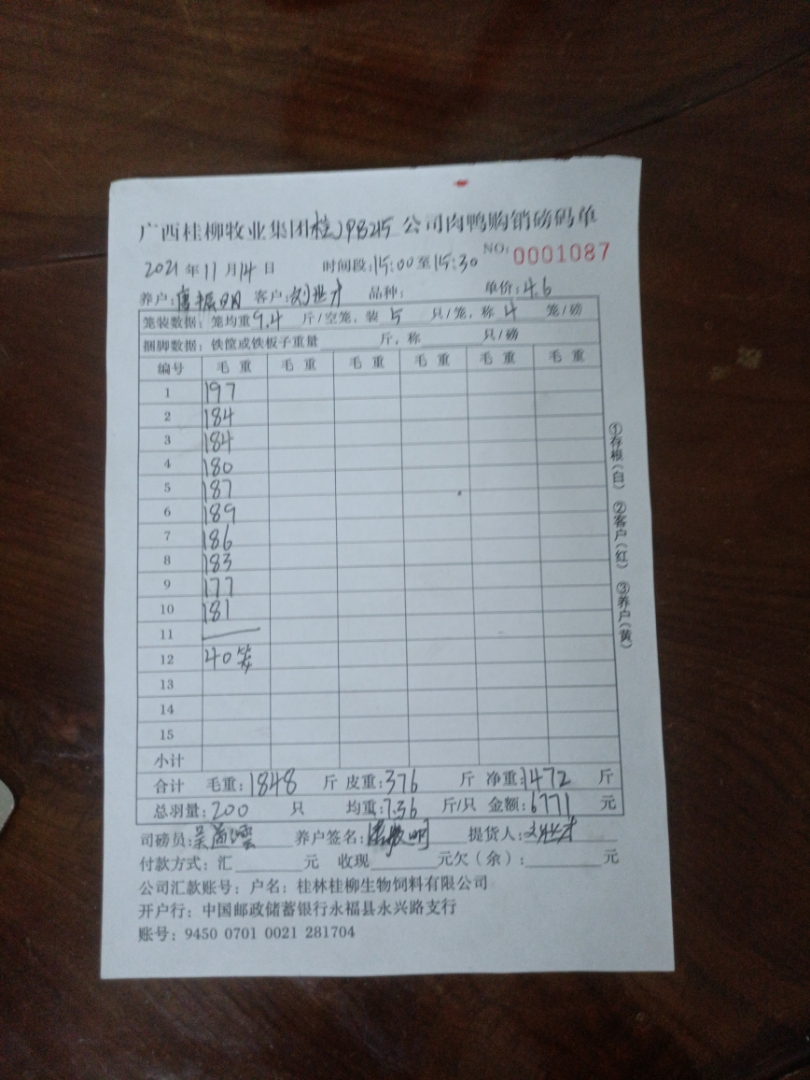 广西桂柳牧业集团 公司肉鸭购销磅码单
NO: 0001087
2021 年 11 月 14 日 时间段: 15:00 至 15:30
养户: 唐振明 客户: 刘世才 品种: 单价: 4.6
笼装数据: 笼均重 9.4 斤/空笼, 装 5 只/笼, 称 4 笼/磅
捆脚数据: 铁筐或铁板子重量 斤, 称 只/磅
编号 毛 重 毛 重 毛 重 毛 重 毛 重 毛 重
1 197
2 184
3 184
4 180
5 187
6 189
7 186
8 183
9 177
10 181
11
12 40笼
13
14
15
小计
合计 毛重: 1848 斤 皮重: 376 斤 净重: 1472 斤
总羽量: 200 只 均重: 7.36 斤/只 金额: 6771 元
司磅员: 养户签名: 提货人:
付款方式: 汇 元 收现 元欠(余): 元
公司汇款账号: 户名: 桂林桂柳生物饲料有限公司
开户行: 中国邮政储蓄银行永福县永兴路支行
账号: 9450 0701 0021 281704
①存根(白) ②客户(红) ③养户(黄)